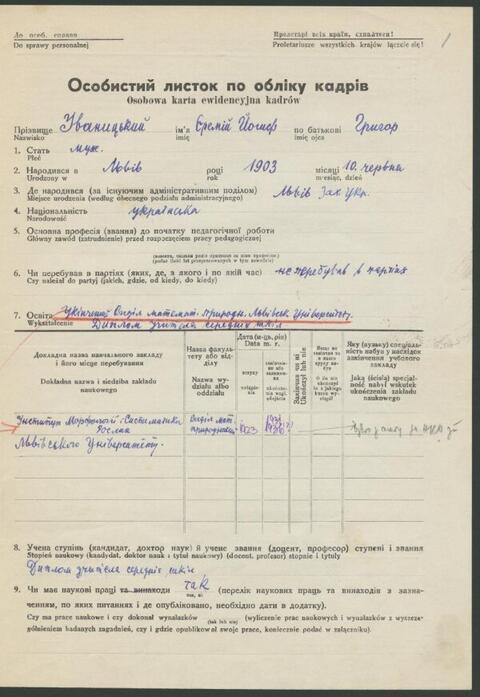 До особ. справи
Do sprawy personalnej
Пролетарі всіх країн, єднайтеся!
Proletariusze wszystkich krajów łączcie się!
1
Особистий листок по обліку кадрів
Osobowa karta ewidencyjna kadrów
Прізвище Іваницький ім'я Єремій Йосиф по батькові Григор
Nazwisko imię imię ojca
1. Стать муж.
Płeć
2. Народився в Львів році 1903 місяці 10. червня
Urodzony w rok miesiąc, dzień
3. Де народився (за існуючим адміністративним поділом) Львів Зах Укр.
Miejsce urodzenia (według obecnego podziału administracyjnego)
4. Національність українська
Narodowość
5. Основна професія (звання) до початку педагогічної роботи
Główny zawód (zatrudnienie) przed rozpoczęciem pracy pedagogicznej
6. Чи перебував в партіях (яких, де, з якого і по якій час) не перебував в партіях
Czy należał do partyj (jakich, gdzie, od kiedy, do kiedy)
7. Освіта Укінчений Відділ математ. природн. Львівськ. Університету.
Wykształcenie Диплом учителя середних шкіл
Докладна назва навчального закладу і його місце перебування
Dokładna nazwa i siedziba zakładu naukowego
Назва факультету або відділу
Nazwa wydziału albo oddziału
Дата (м-ць, рік)
Data m. r.
вступу
Закінчив чи ні
Ukończył lub nie
Яку (вузьку) спеціальність набув у наслідок закінчення учбового закладу
Jaką (ścisłą) specjalność nabył wskutek ukończenia zakładu naukowego
Институт Морфології і Систематики Рослин
Львівського Університету.
Відділ мат. природничий
1923
8. Учена ступінь (кандидат, доктор наук) й учене звання (доцент, професор) ступені і звання
Stopień naukowy (kandydat, doktor nauk i tytuł naukowy) (docent, profesor) stopnie i tytuły
Диплом учителя середніх шкіл
9. Чи має наукові праці та винаходи так (перелік наукових праць та винаходів з зазначенням, по яких питаннях і де опубліковано, необхідно дати в додатку).
так, ні
Czy ma prace naukowe i czy dokonał wynalazków (wyliczenie prac naukowych i wynalazków z wyszczególnieniem badanych zagadnień, czy i gdzie opublikował swoje prace, koniecznie podać w załączniku).
(tak lub nie)